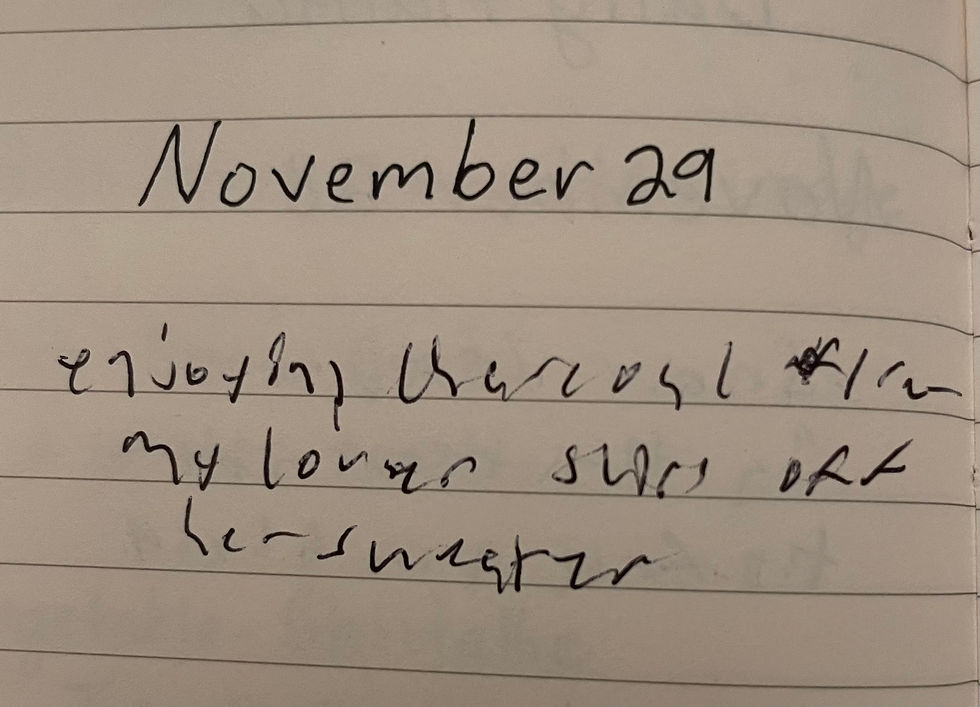 November 29
enjoying charcoal
my lover slips off
her sweater